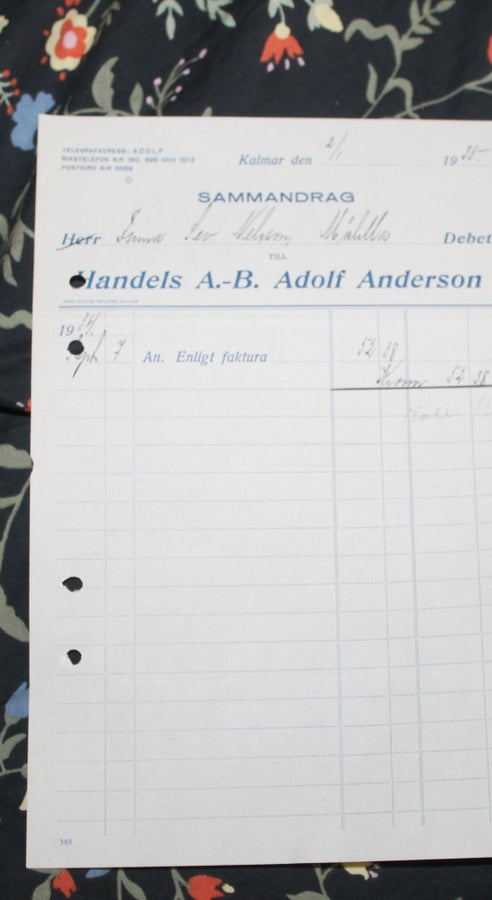 TELEGRAFADRESS: ADOLF
RIKSTELEFON N:R 160, 596 OCH 1572
POSTGIRO N:R 5589
Kalmar den 2/1 1935
SAMMANDRAG
Herr Firma Sev. Nelson, Målilla Debet
TILL
Handels A.-B. Adolf Anderson
1934
Sept 7 An. Enligt faktura 52 38
Kronor 52 38
349